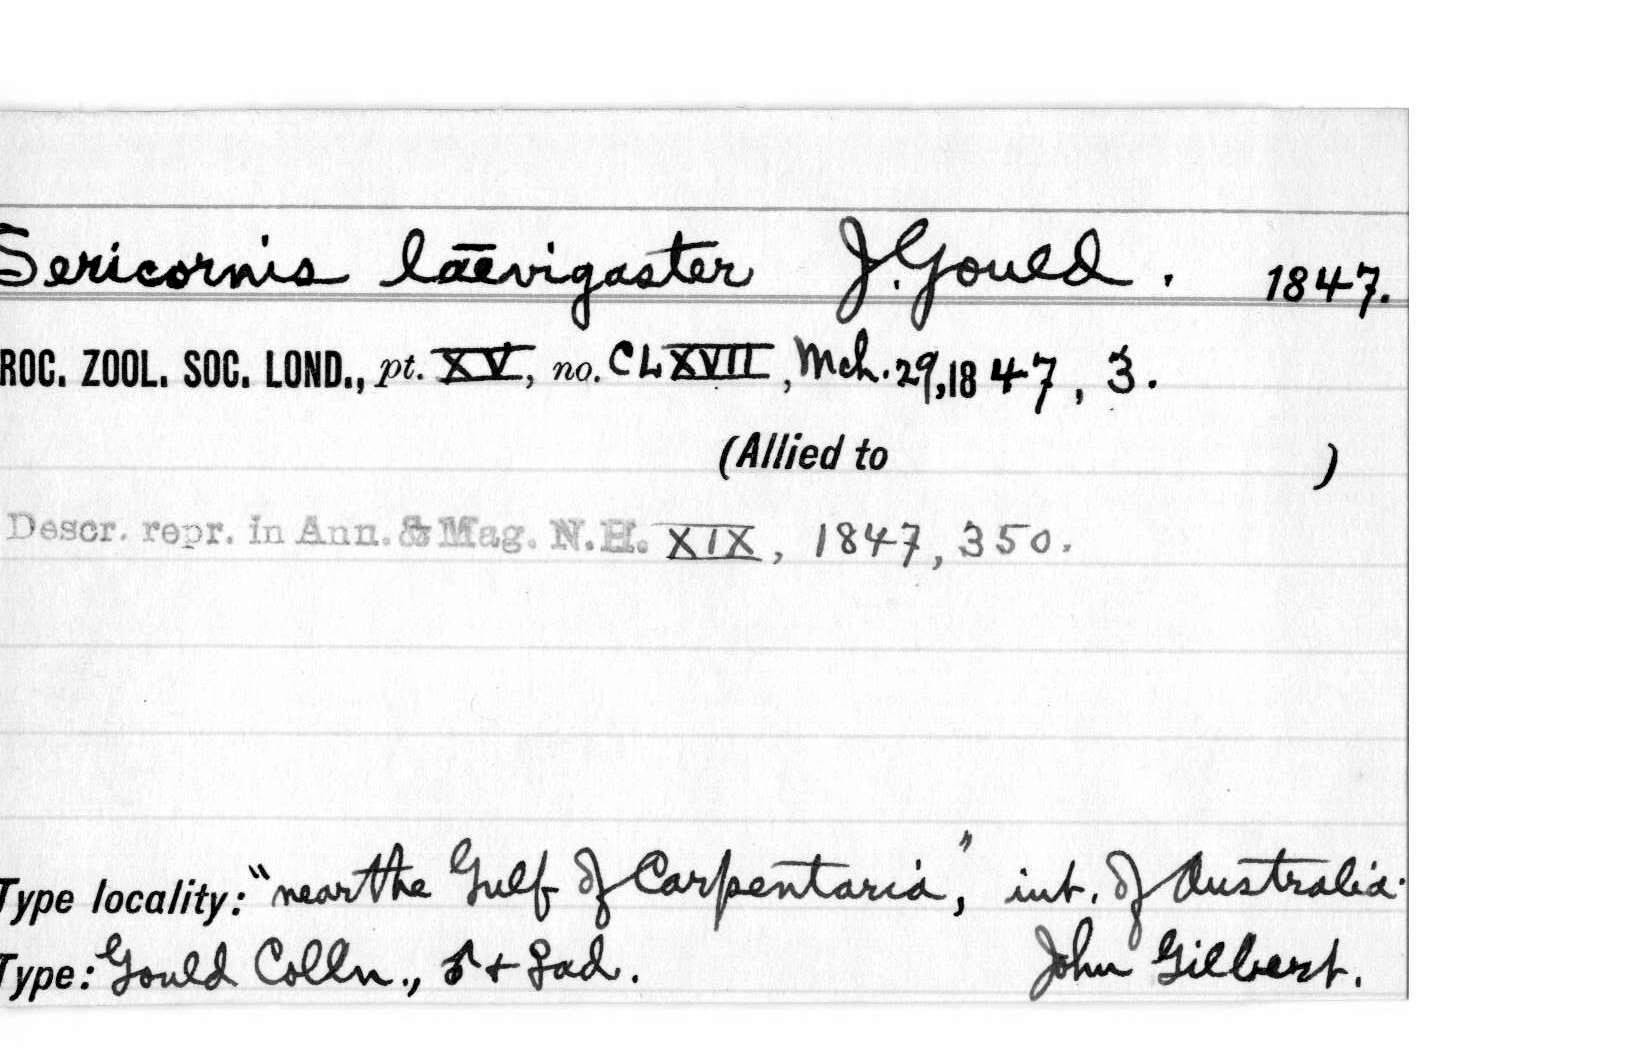 Sericornis laevigaster J. Gould. 1847.
ROC. ZOOL. SOC. LOND., pt. XV, no. CLXVII, Mch. 29, 1847, 3.
(Allied to )
Descr. repr. in Ann. & Mag. N.H. XIX, 1847, 350.
Type locality: "near the Gulf of Carpentaria," int. of Australia.
Type: Gould Colln., ♂ + ♀ ad. John Gilbert.